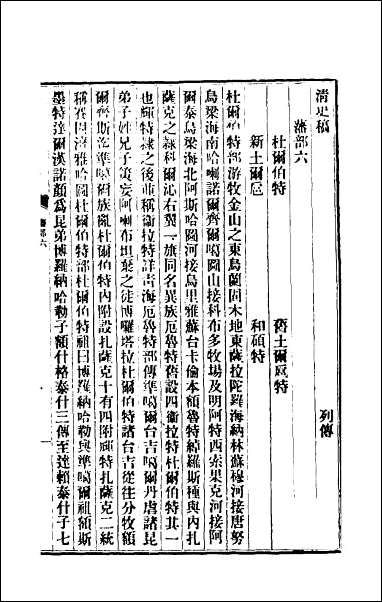 清史稿
藩部六　列傳
杜爾伯特　舊土爾扈特
新土爾扈　和碩特
杜爾伯特部游牧金山之東烏蘭固木地東薩拉陀羅海納林蘇穆河接唐努
烏梁海南哈喇諾爾齊爾噶圖山接科布多牧場及明阿特西索果克河接阿
爾泰烏梁海北阿斯哈圖河接烏里雅蘇台卡倫本額魯特綽羅斯種與內扎
薩克之隸科爾沁右翼一旗同名異族厄魯特舊設四衞拉特杜爾伯特其一
也輝特隸之後並稱衞拉特詳青海厄魯特部傳準噶爾台吉噶爾丹虐諸昆
弟子姓兄子策妄阿喇布坦棄之徒博囉塔拉杜爾伯特諸台吉從往分牧額
爾齊斯迄準噶爾族亂杜爾伯特內附設扎薩克十有四附輝特扎薩克二統
稱賽因濟雅哈圖杜爾伯特部杜爾伯特祖曰博羅納哈勒與準噶爾祖額斯
墨特達爾漢諾顏爲昆弟博羅納哈勒子額什格泰什三傳至達賴泰什子七
藩部六
一